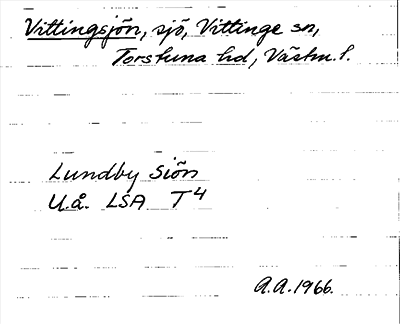 Vittingsjön, sjö, Vittinge sn,
Torstuna hd, Västm. l.
Lundby Siön
U.å. LSA T4
A.A. 1966.